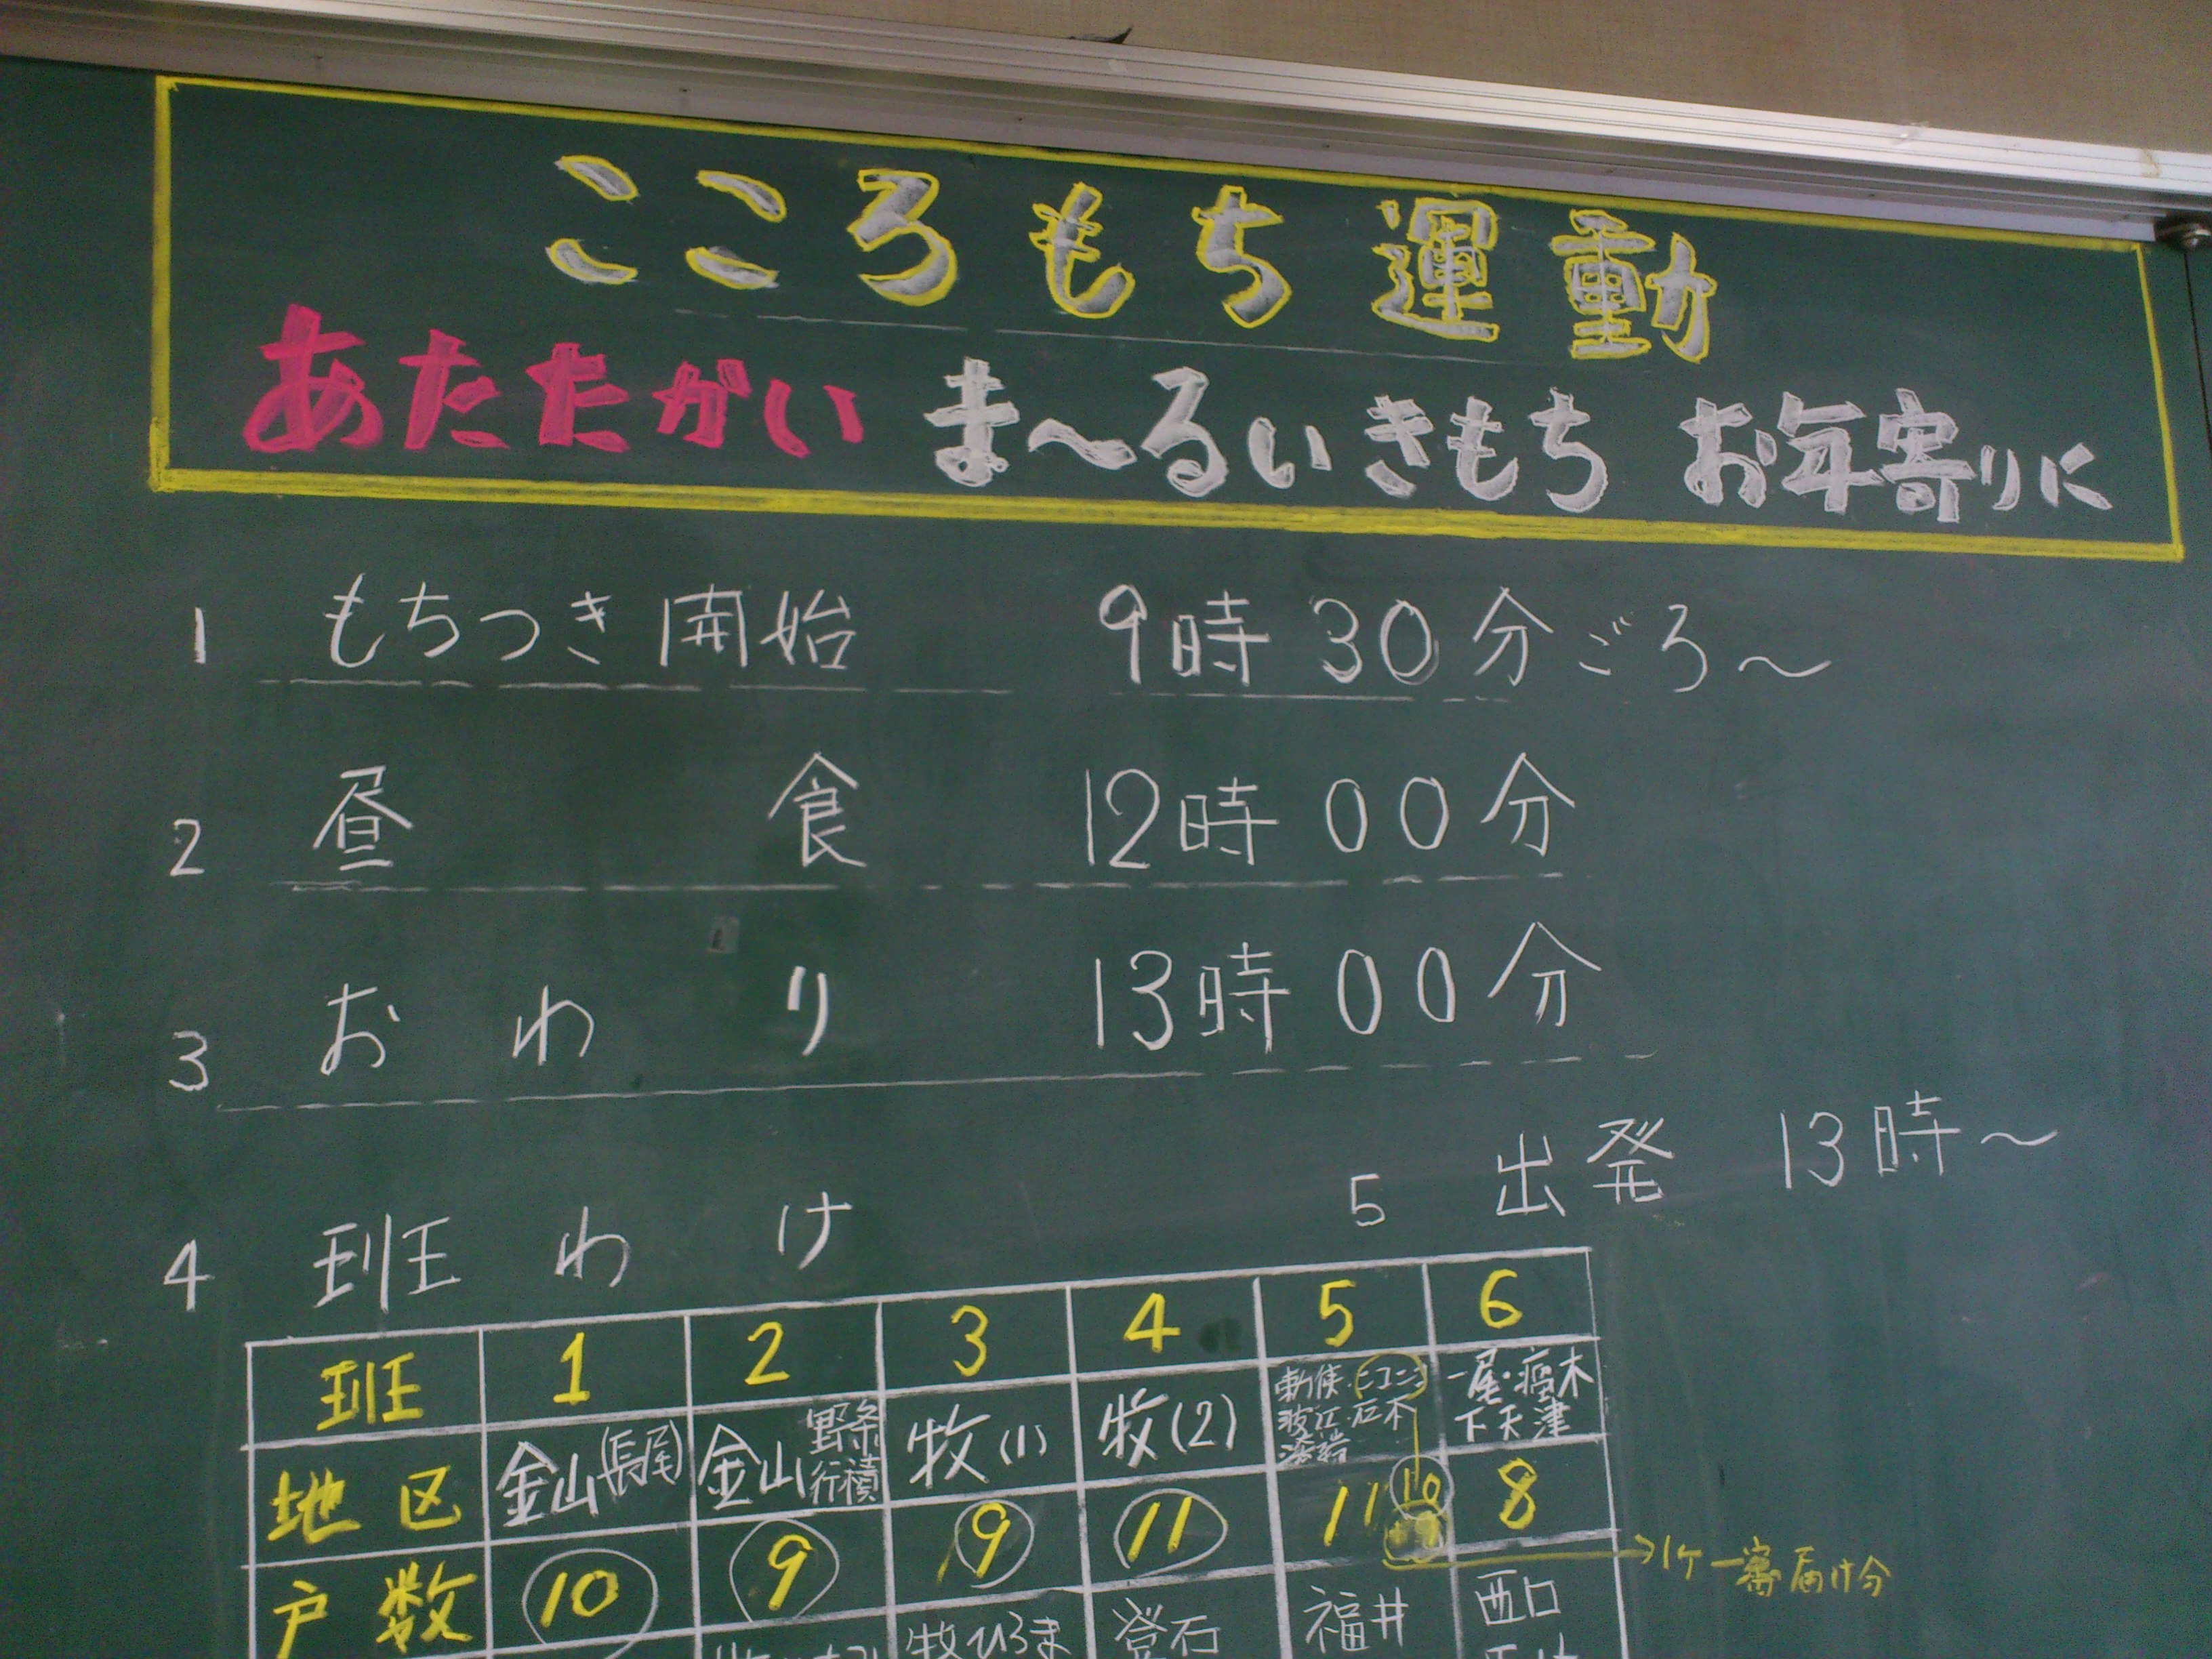 こころもち運動
あたたかい ま〜るいきもち お年寄りに
1 もちつき開始 9時30分ごろ〜
2 昼食 12時00分
3 おわり 13時00分
5 出発 13時〜
4 班わけ
班 1 2 3 4 5 6
地区 金山(長尾) 金山 野条 行積 牧(1) 牧(2) 勅使・ 波江・石不 一尾・ 下天津
戸数 10 9 9 11 11 10 8
→1ケ 届け分
牧ひろま 登石 福井 西口